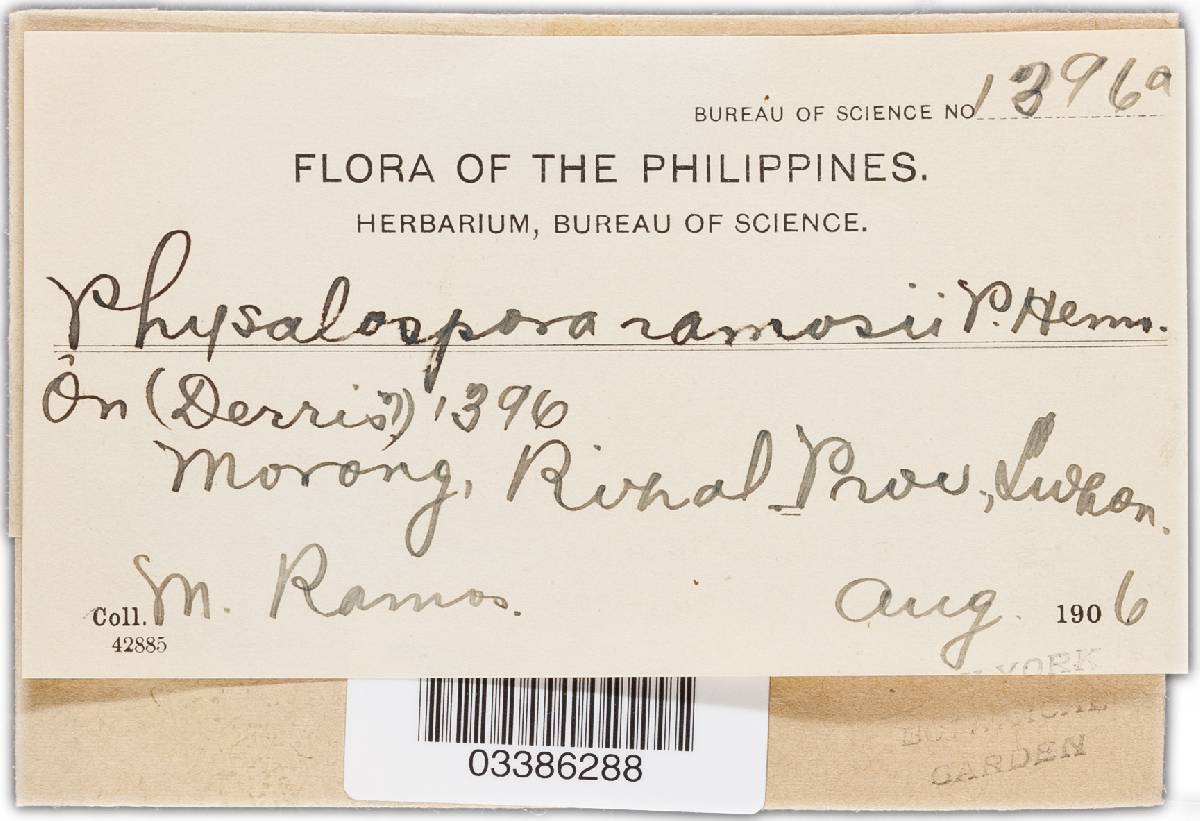 BUREAU OF SCIENCE NO 1396a
FLORA OF THE PHILIPPINES.
HERBARIUM, BUREAU OF SCIENCE.
Physalospora ramosii P. Henn.
On (Derris?) 1396
Morong, Rizal Prov., Luzon.
Coll. M. Ramos. Aug. 1906
42885
YORK
BOTANICAL
GARDEN
03386288